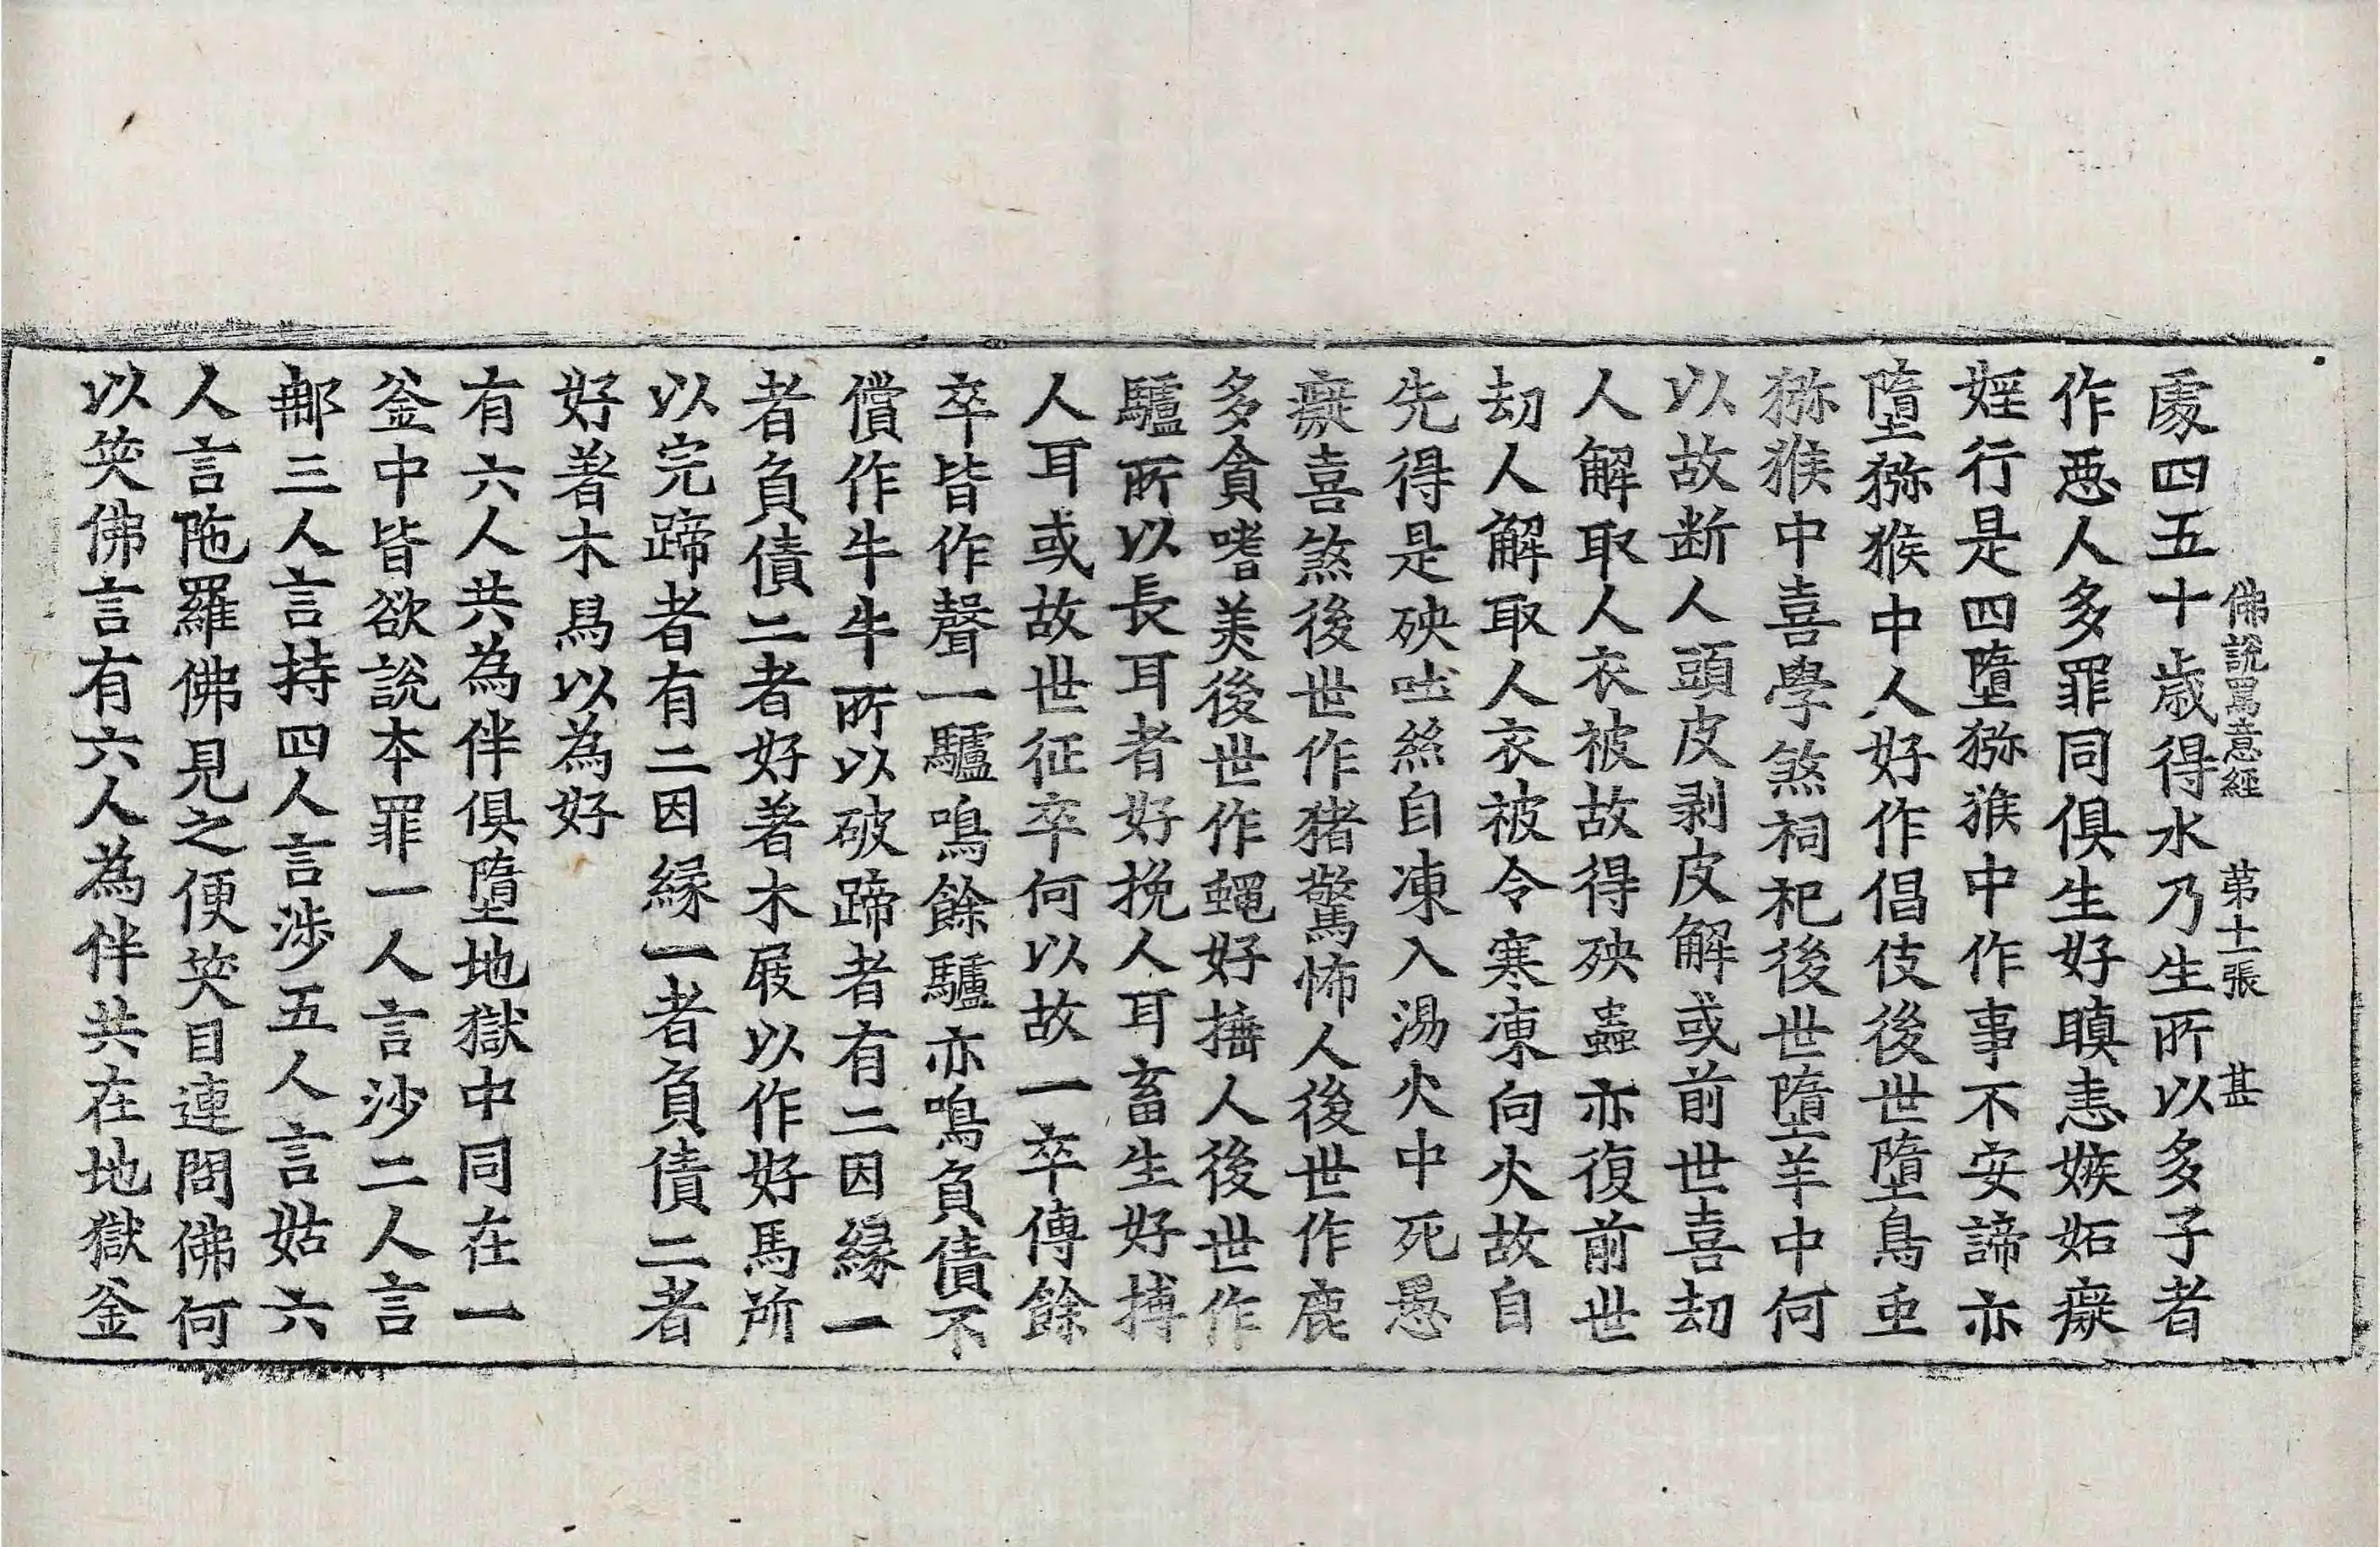 佛說罵意經　第十一張　甚
處四五十歲得水乃生所以多子者
作惡人多罪同俱生好瞋恚嫉妬癡
婬行是四墮猕猴中作事不安諦亦
墮猕猴中人好作倡伎後世墮鳥重
猕猴中喜學煞祠祀後世墮羊中何
以故断人頭皮剥皮解或前世喜刧
人解取人衣被故得殃蟲亦復前世
刧人解取人衣被令寒凍向火故自
先得是殃吐絲自凍入湯火中死愚
癡喜煞後世作猪驚怖人後世作鹿
多貪嗜美後世作蠅好捶人後世作
驢所以長耳者好挽人耳畜生好搏
人耳或故世征卒何以故一卒傳餘
卒皆作聲一驢鳴餘驢亦鳴負債不
償作牛牛所以破蹄者有二因緣一
者負債二者好著木屐以作好馬所
以完蹄者有二因緣一者負債二者
好著木舄以為好
有六人共為伴俱墮地獄中同在一
釜中皆欲說本罪一人言沙二人言
㖠三人言持四人言涉五人言姑六
人言陁羅佛見之便笑目連問佛何
以笑佛言有六人為伴共在地獄釜